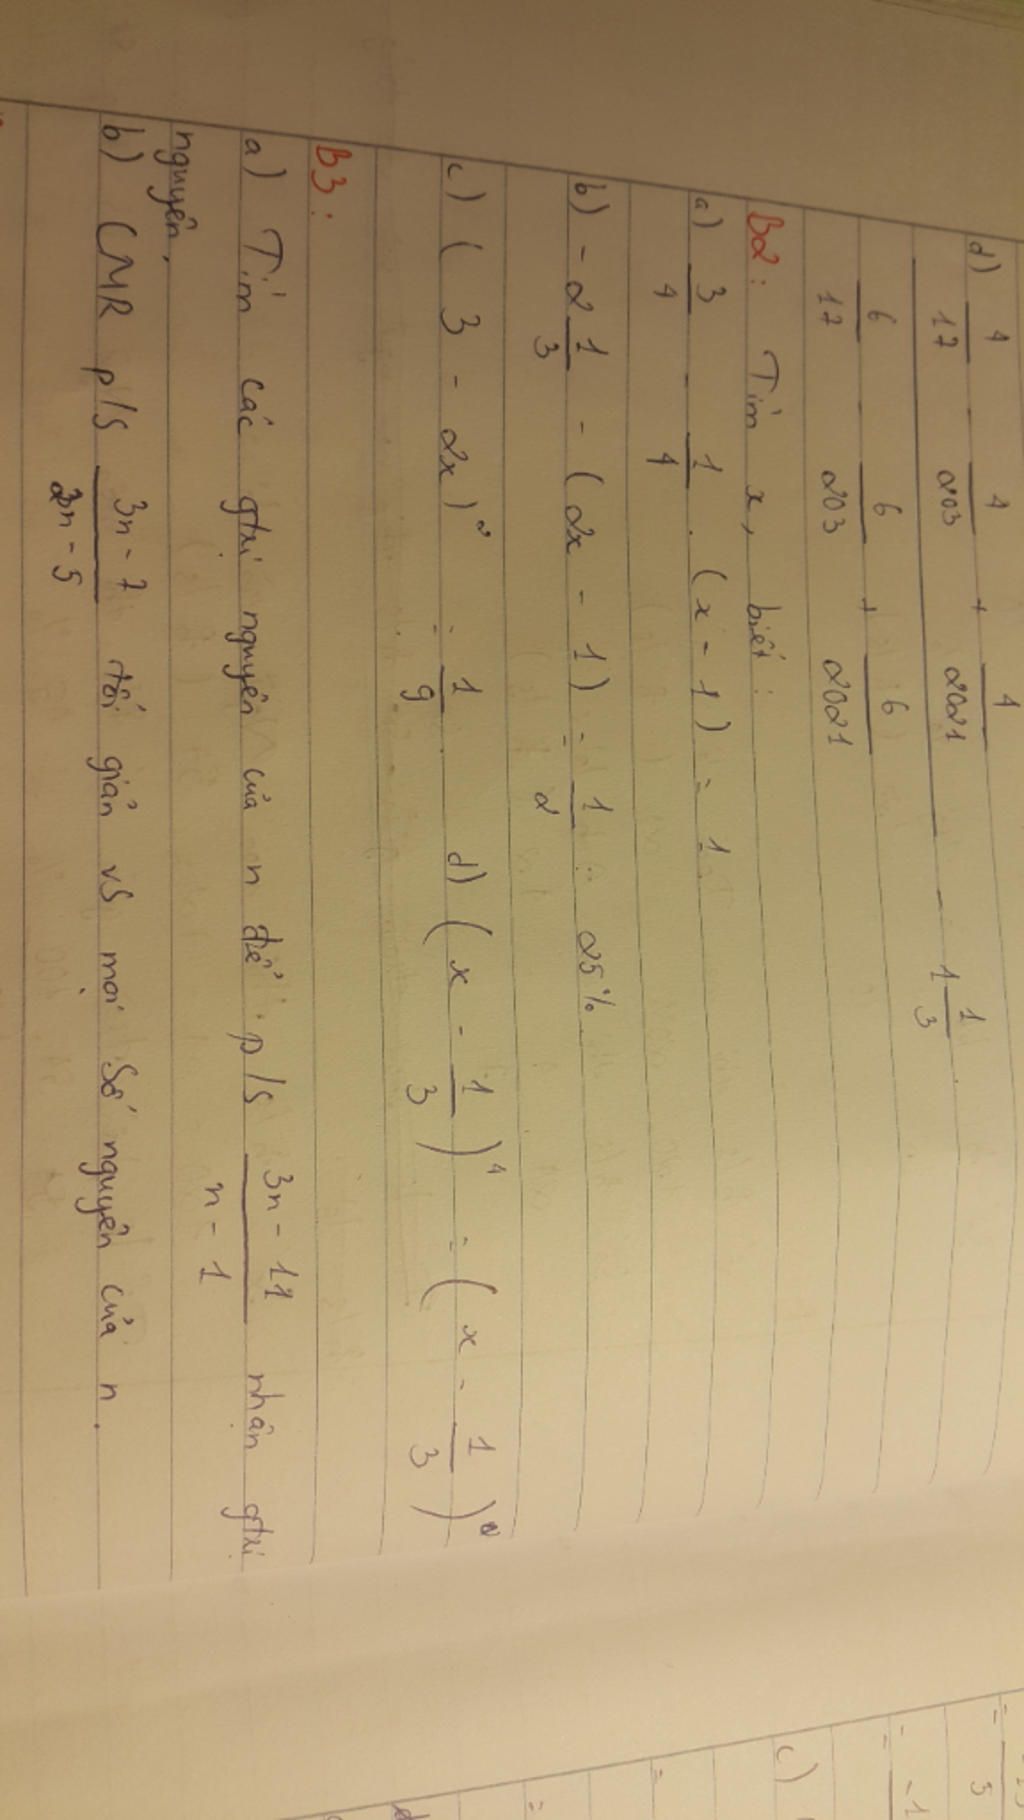 d) 4/17 - 4/203 + 4/2021
6/17 - 6/203 + 6/2021 - 1 1/3
B2: Tìm x, biết:
a) 3/4 - 1/4 . (x - 1) = 1
b) - 2 1/3 - (2x - 1) = 1/2 : 25%
c) (3 - 2x)² = 1/9 d) (x - 1/3)⁴ = (x - 1/3)²
B3:
a) Tìm các gtrị nguyên của n để p/s 3n - 11/n - 1 nhận gtrị
nguyên.
b) CMR p/s 3n - 7/2n - 5 tối giản vs mọi số nguyên của n.
c)